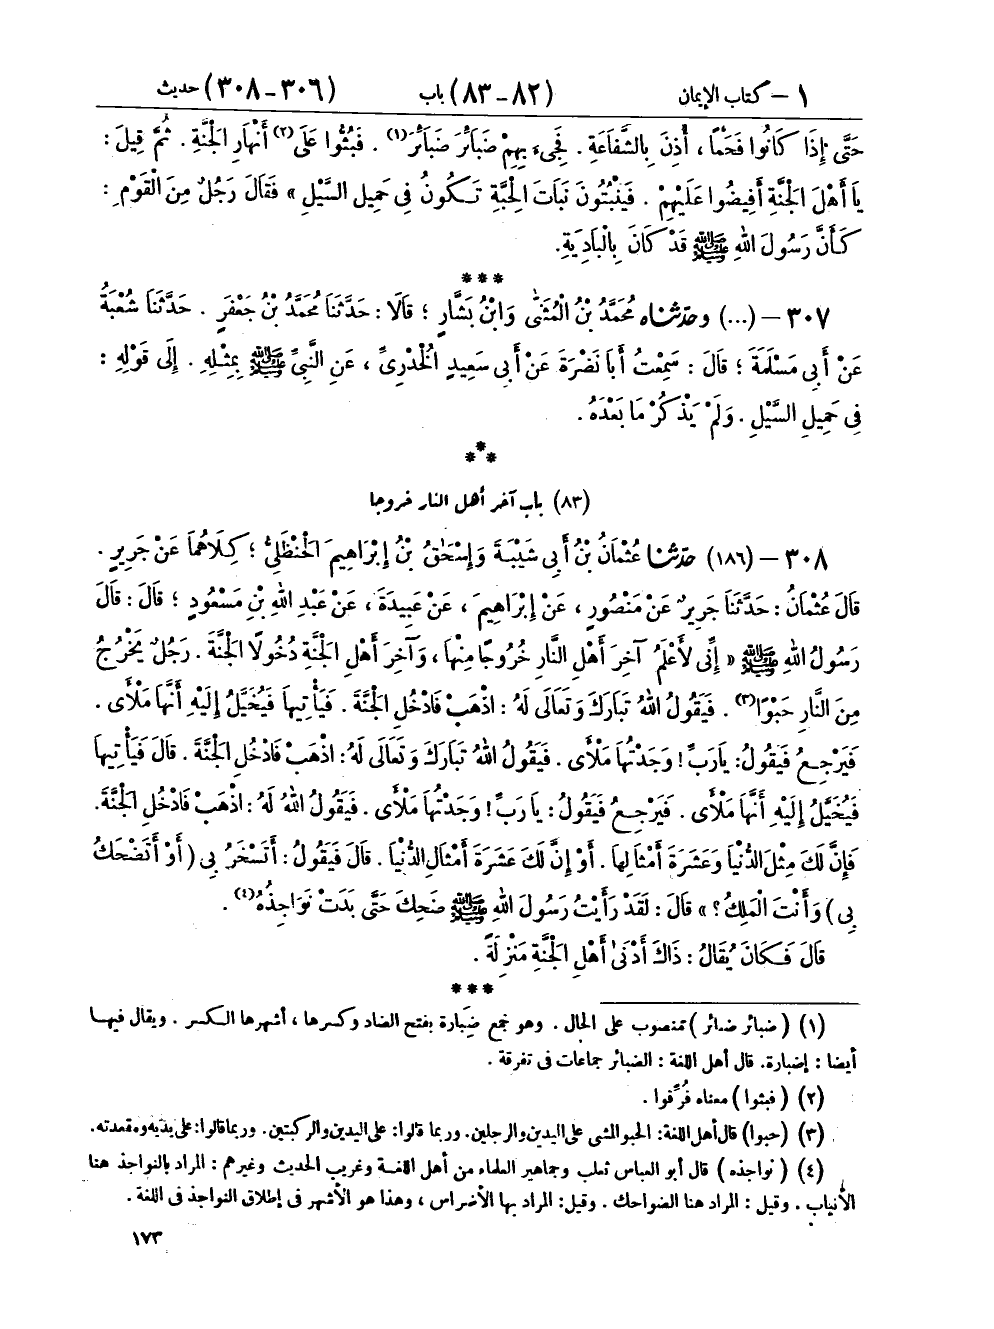 ١ – كتاب الإيمان (٨٢ – ٨٣) باب (٣٠٦ – ٣٠٨) حديث
حَتَّى إِذَا كَانُوا فَحْمًا ، أُذِنَ بِالشَّفَاعَةِ . فَجِىءَ بِهِمْ ضَبَائِرَ ضَبَائِرَ(١) . فَبُثُّوا عَلَى(٢) أَنْهَارِ الْجَنَّةِ . ثُمَّ قِيلَ :
يَا أَهْلَ الْجَنَّةِ أَفِيضُوا عَلَيْهِمْ . فَيَنْبُتُونَ نَبَاتَ الْحِبَّةِ تَكُونُ فِى حَمِيلِ السَّيْلِ » فَقَالَ رَجُلٌ مِنَ الْقَوْمِ :
كَأَنَّ رَسُولَ اللهِ ﷺ قَدْ كَانَ بِالْبَادِيَةِ.
***
٣٠٧ – (...) وحدثناه مُحَمَّدُ بْنُ الْمُثَنَّى وَابْنُ بَشَّارٍ ؛ قَالَا : حَدَّثَنَا مُحَمَّدُ بْنُ جَعْفَرٍ . حَدَّثَنَا شُعْبَةُ
عَنْ أَبِى مَسْلَمَةَ ؛ قَالَ : سَمِعْتُ أَبَا نَضْرَةَ عَنْ أَبِى سَعِيدٍ الْخُدْرِىِّ ، عَنِ النَّبِىِّ ﷺ بِمِثْلِهِ . إِلَى قَوْلِهِ :
فِى حَمِيلِ السَّيْلِ . وَلَمْ يَذْكُرْ مَا بَعْدَهُ .
***
(٨٣) باب آخر أهل النار خروجا
٣٠٨ – (١٨٦) حدثنا عُثْمَانُ بْنُ أَبِى شَيْبَةَ وَإِسْحَقُ بْنُ إِبْرَاهِيمَ الْحَنْظَلِىُّ ؛ كِلَاهُمَا عَنْ جَرِيرٍ .
قَالَ عُثْمَانُ : حَدَّثَنَا جَرِيرٌ عَنْ مَنْصُورٍ ، عَنْ إِبْرَاهِيمَ ، عَنْ عَبِيدَةَ ، عَنْ عَبْدِ اللهِ بْنِ مَسْعُودٍ ؛ قَالَ : قَالَ
رَسُولُ اللهِ ﷺ « إِنِّى لَأَعْلَمُ آخِرَ أَهْلِ النَّارِ خُرُوجًا مِنْهَا ، وَآخِرَ أَهْلِ الْجَنَّةِ دُخُولًا الْجَنَّةَ . رَجُلٌ يَخْرُجُ
مِنَ النَّارِ حَبْوًا(٣) . فَيَقُولُ اللهُ تَبَارَكَ وَتَعَالَى لَهُ : اذْهَبْ فَادْخُلِ الْجَنَّةَ . فَيَأْتِيهَا فَيُخَيَّلُ إِلَيْهِ أَنَّهَا مَلْأَى .
فَيَرْجِعُ فَيَقُولُ: يَا رَبِّ ! وَجَدْتُهَا مَلْأَى . فَيَقُولُ اللهُ تَبَارَكَ وَتَعَالَى لَهُ: اذْهَبْ فَادْخُلِ الْجَنَّةَ . قَالَ فَيَأْتِيهَا
فَيُخَيَّلُ إِلَيْهِ أَنَّهَا مَلْأَى . فَيَرْجِعُ فَيَقُولُ : يَا رَبِّ ! وَجَدْتُهَا مَلْأَى . فَيَقُولُ اللهُ لَهُ : اذْهَبْ فَادْخُلِ الْجَنَّةَ.
فَإِنَّ لَكَ مِثْلَ الدُّنْيَا وَعَشَرَةَ أَمْثَالِهَا . أَوْ إِنَّ لَكَ عَشَرَةَ أَمْثَالِ الدُّنْيَا . قَالَ فَيَقُولُ : أَتَسْخَرُ بِى ( أَوْ أَتَضْحَكُ
بِى ) وَأَنْتَ الْمَلِكُ ؟ » قَالَ : لَقَدْ رَأَيْتُ رَسُولَ اللهِ ﷺ ضَحِكَ حَتَّى بَدَتْ نَوَاجِذُهُ(٤) .
قَالَ فَكَانَ يُقَالُ : ذَاكَ أَدْنَى أَهْلِ الْجَنَّةِ مَنْزِلَةً .
***
(١) ( ضبائر ضبائر ) منصوب على الحال . وهو جمع ضبارة بفتح الضاد وكسرها ، أشهرها الكسر . ويقال فيها
أيضا : إضبارة. قال أهل اللغة : الضبائر جماعات فى تفرقة .
(٢) ( فبثوا ) معناه فُرِّقوا .
(٣) (حبوا) قال أهل اللغة: الحبو المشى على اليدين والرجلين. وربما قالوا: على اليدين والركبتين. وربما قالوا: على يديه ومقعدته.
(٤) ( نواجذه ) قال أبو العباس ثعلب وجماهير العلماء من أهل اللغة وغريب الحديث وغيرهم : المراد بالنواجذ هنا
الأنياب . وقيل : المراد هنا الضواحك . وقيل: المراد بها الأضراس ، وهذا هو الأشهر فى إطلاق النواجذ فى اللغة .
١٧٣